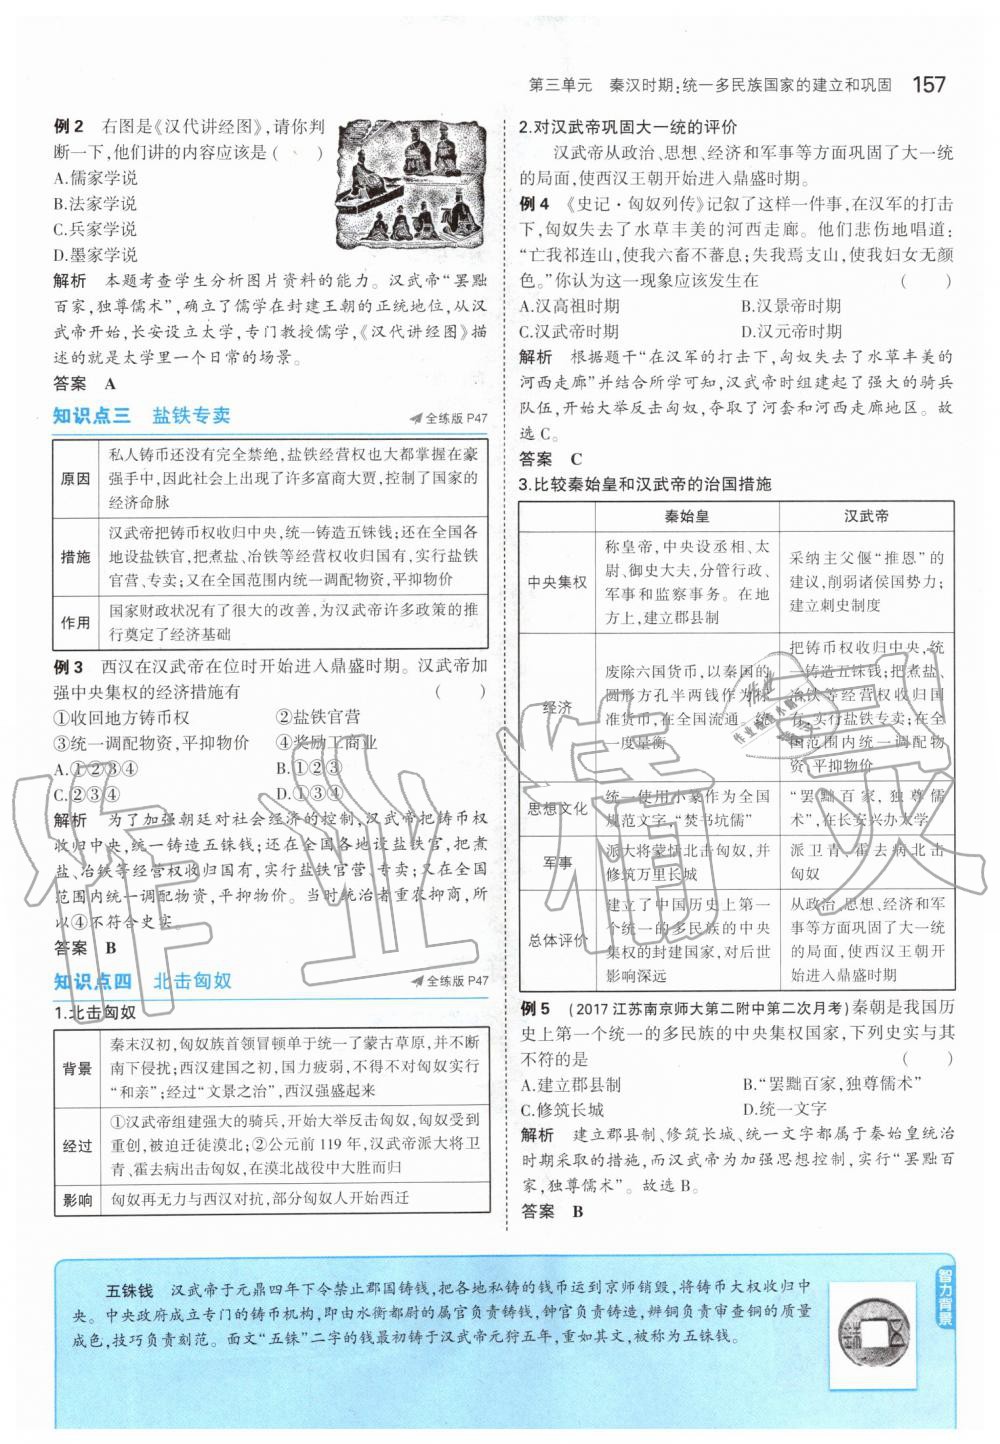 第三单元 秦汉时期:统一多民族国家的建立和巩固 157
例2 右图是《汉代讲经图》,请你判
断一下,他们讲的内容应该是( )
A.儒家学说
B.法家学说
C.兵家学说
D.墨家学说
解析 本题考查学生分析图片资料的能力。汉武帝“罢黜
百家,独尊儒术”,确立了儒学在封建王朝的正统地位,从汉
武帝开始,长安设立太学,专门教授儒学,《汉代讲经图》描
述的就是太学里一个日常的场景。
答案 A
知识点三 盐铁专卖 全练版 P47
原因
私人铸币还没有完全禁绝,盐铁经营权也大都掌握在豪
强手中,因此社会上出现了许多富商大贾,控制了国家的
经济命脉
措施
汉武帝把铸币权收归中央,统一铸造五铢钱;还在全国各
地设盐铁官,把煮盐、冶铁等经营权收归国有,实行盐铁
官营、专卖;又在全国范围内统一调配物资,平抑物价
作用
国家财政状况有了很大的改善,为汉武帝许多政策的推
行奠定了经济基础
例3 西汉在汉武帝在位时开始进入鼎盛时期。汉武帝加
强中央集权的经济措施有 ( )
①收回地方铸币权 ②盐铁官营
③统一调配物资,平抑物价 ④奖励工商业
A.①②③④ B.①②③
C.②③④ D.①③④
解析 为了加强朝廷对社会经济的控制,汉武帝把铸币权
收归中央,统一铸造五铢钱;还在全国各地设盐铁官,把煮
盐、冶铁等经营权收归国有,实行盐铁官营、专卖;又在全国
范围内统一调配物资,平抑物价。当时统治者重农抑商,所
以④不符合史实。
答案 B
知识点四 北击匈奴 全练版 P47
1.北击匈奴
背景
秦末汉初,匈奴族首领冒顿单于统一了蒙古草原,并不断
南下侵扰;西汉建国之初,国力疲弱,不得不对匈奴实行
“和亲”;经过“文景之治”,西汉强盛起来
经过
①汉武帝组建强大的骑兵,开始大举反击匈奴,匈奴受到
重创,被迫迁徙漠北;②公元前 119 年,汉武帝派大将卫
青、霍去病出击匈奴,在漠北战役中大胜而归
影响
匈奴再无力与西汉对抗,部分匈奴人开始西迁
2.对汉武帝巩固大一统的评价
汉武帝从政治、思想、经济和军事等方面巩固了大一统
的局面,使西汉王朝开始进入鼎盛时期。
例4 《史记·匈奴列传》记叙了这样一件事,在汉军的打击
下,匈奴失去了水草丰美的河西走廊。他们悲伤地唱道:
“亡我祁连山,使我六畜不蕃息;失我焉支山,使我妇女无颜
色。”你认为这一现象应该发生在 ( )
A.汉高祖时期 B.汉景帝时期
C.汉武帝时期 D.汉元帝时期
解析 根据题干“在汉军的打击下,匈奴失去了水草丰美的
河西走廊”并结合所学可知,汉武帝时组建起了强大的骑兵
队伍,开始大举反击匈奴,夺取了河套和河西走廊地区。故
选C。
答案 C
3.比较秦始皇和汉武帝的治国措施
秦始皇 汉武帝
中央集权
称皇帝,中央设丞相、太
尉、御史大夫,分管行政、
军事和监察事务。在地
方上,建立郡县制
采纳主父偃“推恩”的
建议,削弱诸侯国势力;
建立刺史制度
经济
废除六国货币,以秦国的
圆形方孔半两钱作为标
准货币,在全国流通。统
一度量衡
把铸币权收归中央,统
一铸造五铢钱;把煮盐、
冶铁等经营权收归国
有,实行盐铁专卖;在全
国范围内统一调配物
资,平抑物价
思想文化
统一使用小篆作为全国
规范文字,“焚书坑儒”
“罢黜百家,独尊儒
术”,在长安兴办太学
军事
派大将蒙恬北击匈奴,并
修筑万里长城
派卫青、霍去病北击
匈奴
总体评价
建立了中国历史上第一
个统一的多民族的中央
集权的封建国家,对后世
影响深远
从政治、思想、经济和军
事等方面巩固了大一统
的局面,使西汉王朝开
始进入鼎盛时期
例5 (2017江苏南京师大第二附中第二次月考)秦朝是我国历
史上第一个统一的多民族的中央集权国家,下列史实与其
不符的是 ( )
A.建立郡县制 B.“罢黜百家,独尊儒术”
C.修筑长城 D.统一文字
解析 建立郡县制、修筑长城、统一文字都属于秦始皇统治
时期采取的措施,而汉武帝为加强思想控制,实行“罢黜百
家,独尊儒术”。故选 B。
答案 B
智力背景
五铢钱 汉武帝于元鼎四年下令禁止郡国铸钱,把各地私铸的钱币运到京师销毁,将铸币大权收归中
央。中央政府成立专门的铸币机构,即由水衡都尉的属官负责铸钱,钟官负责铸造,辨铜负责审查铜的质量
成色,技巧负责刻范。面文“五铢”二字的钱最初铸于汉武帝元狩五年,重如其文,被称为五铢钱。
作业精灵